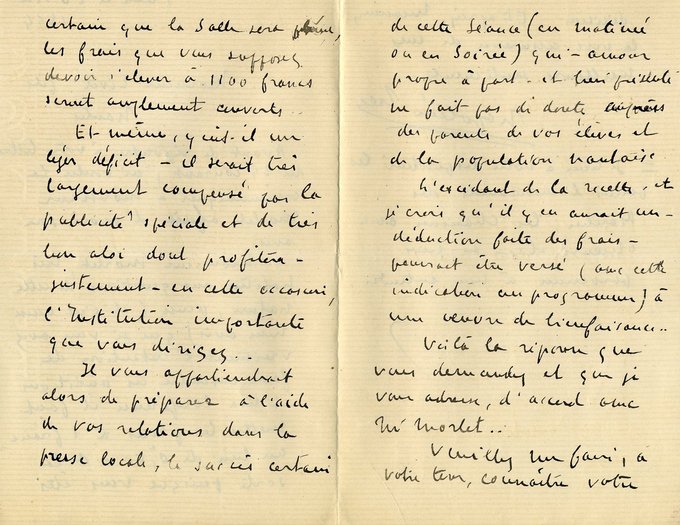 certain que la Salle sera pleine,
les frais que vous supposez
devoir s'élever à 1100 francs
seront amplement couverts..
Et même, y eut-il un
léger déficit - il serait très
largement compensé par la
publicité spéciale et de très
bon aloi dont profitera -
justement - en cette occasion,
l'Institution importante
que vous dirigez..
Il vous appartiendrait
alors de préparer à l'aide
de vos relations dans la
presse locale, le succès certain
de cette Séance (en matinée
ou en Soirée) qui - amour
propre à part - et bien présenté
ne fait pas de doute auprès
des parents de vos élèves et
de la population nantaise
L'excédant de la recette, et
je crois qu'il y en aurait un -
déduction faite des frais -
pourrait être versé (avec cette
indication au programme) à
une oeuvre de bienfaisance..
Voilà la réponse que
vous demandez et que je
vous adresse, d'accord avec
Mr Morlet..
Veuillez me faire, à
votre tour, connaître votre